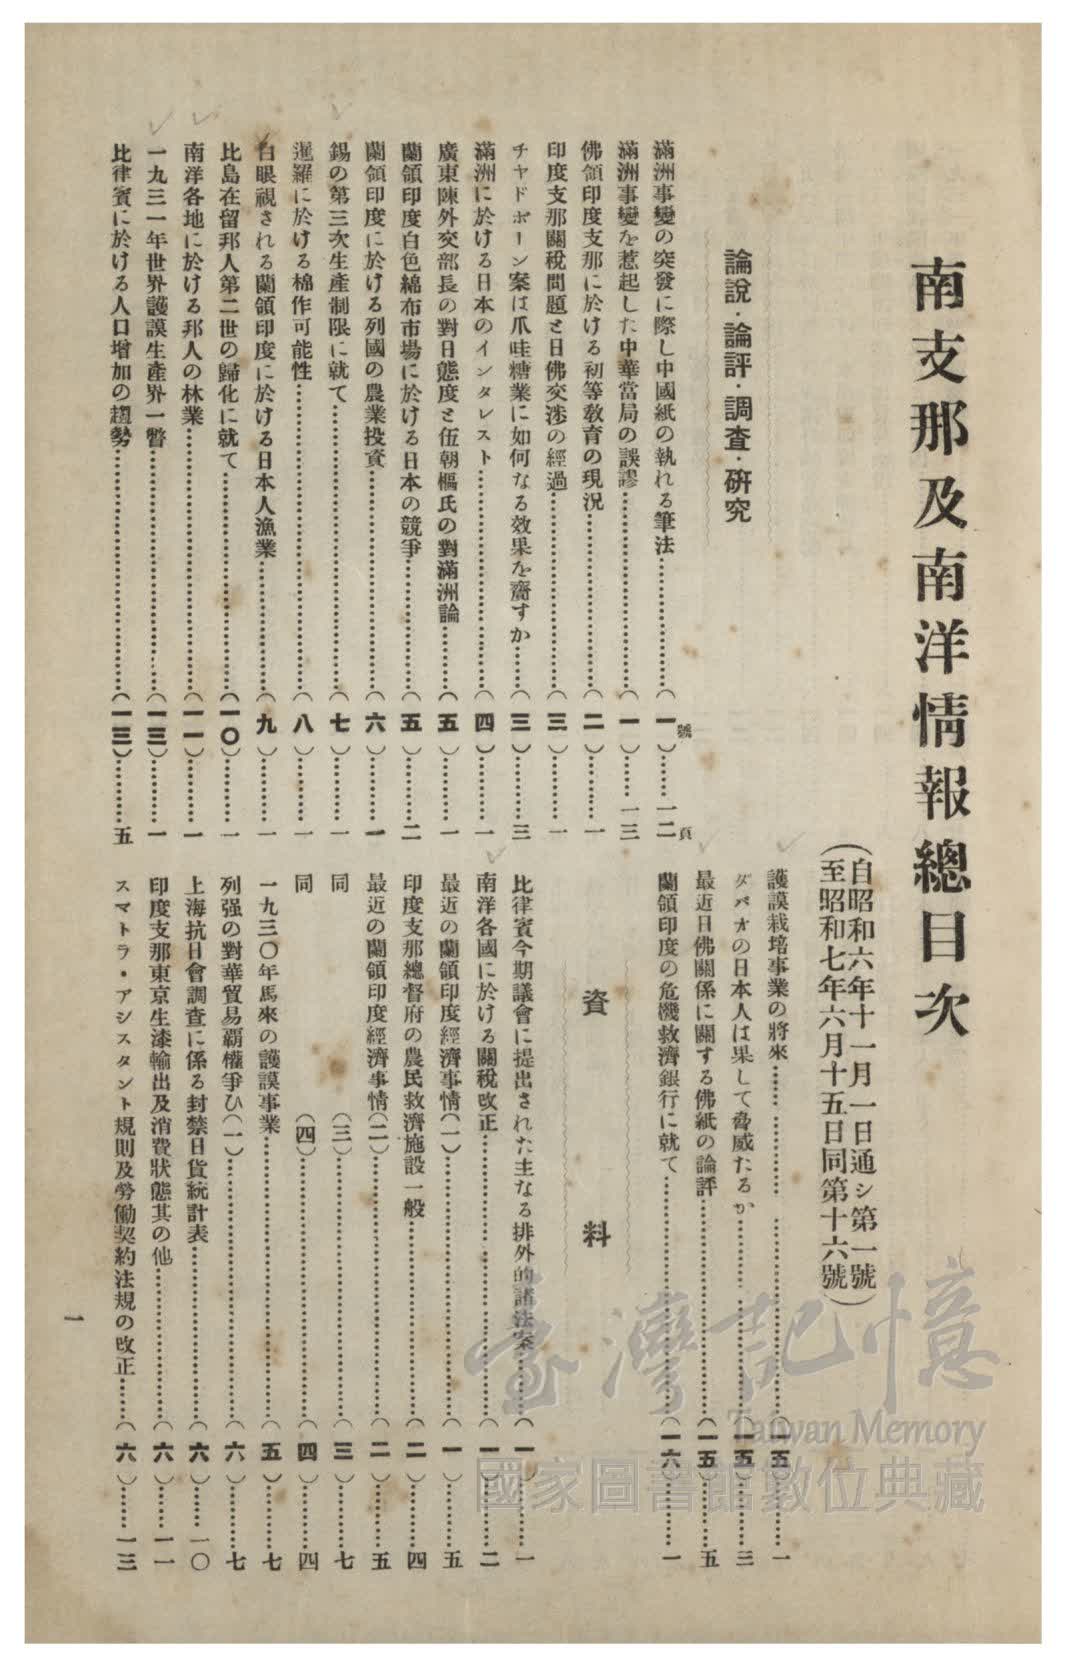 南支那及南洋情報總目次
(自昭和六年十一月一日通シ第一號)
(至昭和七年六月十五日同第十六號)
論說・論評・調査・硏究
滿洲事變の突發に際し中國紙の執れる筆法……(一號)……一二頁
滿洲事變を惹起した中華當局の誤謬……(一)……一三
佛領印度支那に於ける初等敎育の現況……(二)……一
印度支那關稅問題と日佛交涉の經過……(三)……一
チヤドボーン案は爪哇糖業に如何なる效果を齎すか……(三)……三
滿洲に於ける日本のインタレスト……(四)……一
廣東陳外交部長の對日態度と伍朝樞氏の對滿洲論……(五)……一
蘭領印度白色綿布市場に於ける日本の競爭……(五)……二
蘭領印度に於ける列國の農業投資……(六)……一
錫の第三次生產制限に就て……(七)……一
暹羅に於ける棉作可能性……(八)……一
白眼視される蘭領印度に於ける日本人漁業……(九)……一
比島在留邦人第二世の歸化に就て……(一〇)……一
南洋各地に於ける邦人の林業……(一一)……一
一九三一年世界護謨生產界一瞥……(一三)……一
比律賓に於ける人口增加の趨勢……(一三)……五
護謨栽培事業の將來……(一五)……一
ダバオの日本人は果して脅威たるか……(一五)……三
最近日佛關係に關する佛紙の論評……(一五)……五
蘭領印度の危機救濟銀行に就て……(一六)……一
資料
比律賓今期議會に提出された主なる排外的諸法案……(一)……一
南洋各國に於ける關稅改正……(一)……二
最近の蘭領印度經濟事情(一)……(一)……五
印度支那總督府の農民救濟施設一般……(二)……四
最近の蘭領印度經濟事情(二)……(二)……五
同(三)……(三)……七
同(四)……(四)……四
一九三〇年馬來の護謨事業……(五)……七
列强の對華貿易覇權爭ひ(一)……(六)……七
上海抗日會調査に係る封禁日貨統計表……(六)……一〇
印度支那東京生漆輸出及消費狀態其の他……(六)……一一
スマトラ・アシスタント規則及勞働契約法規の改正……(六)……一三
一
臺灣記憶
Taiwan Memory
國家圖書館數位典藏